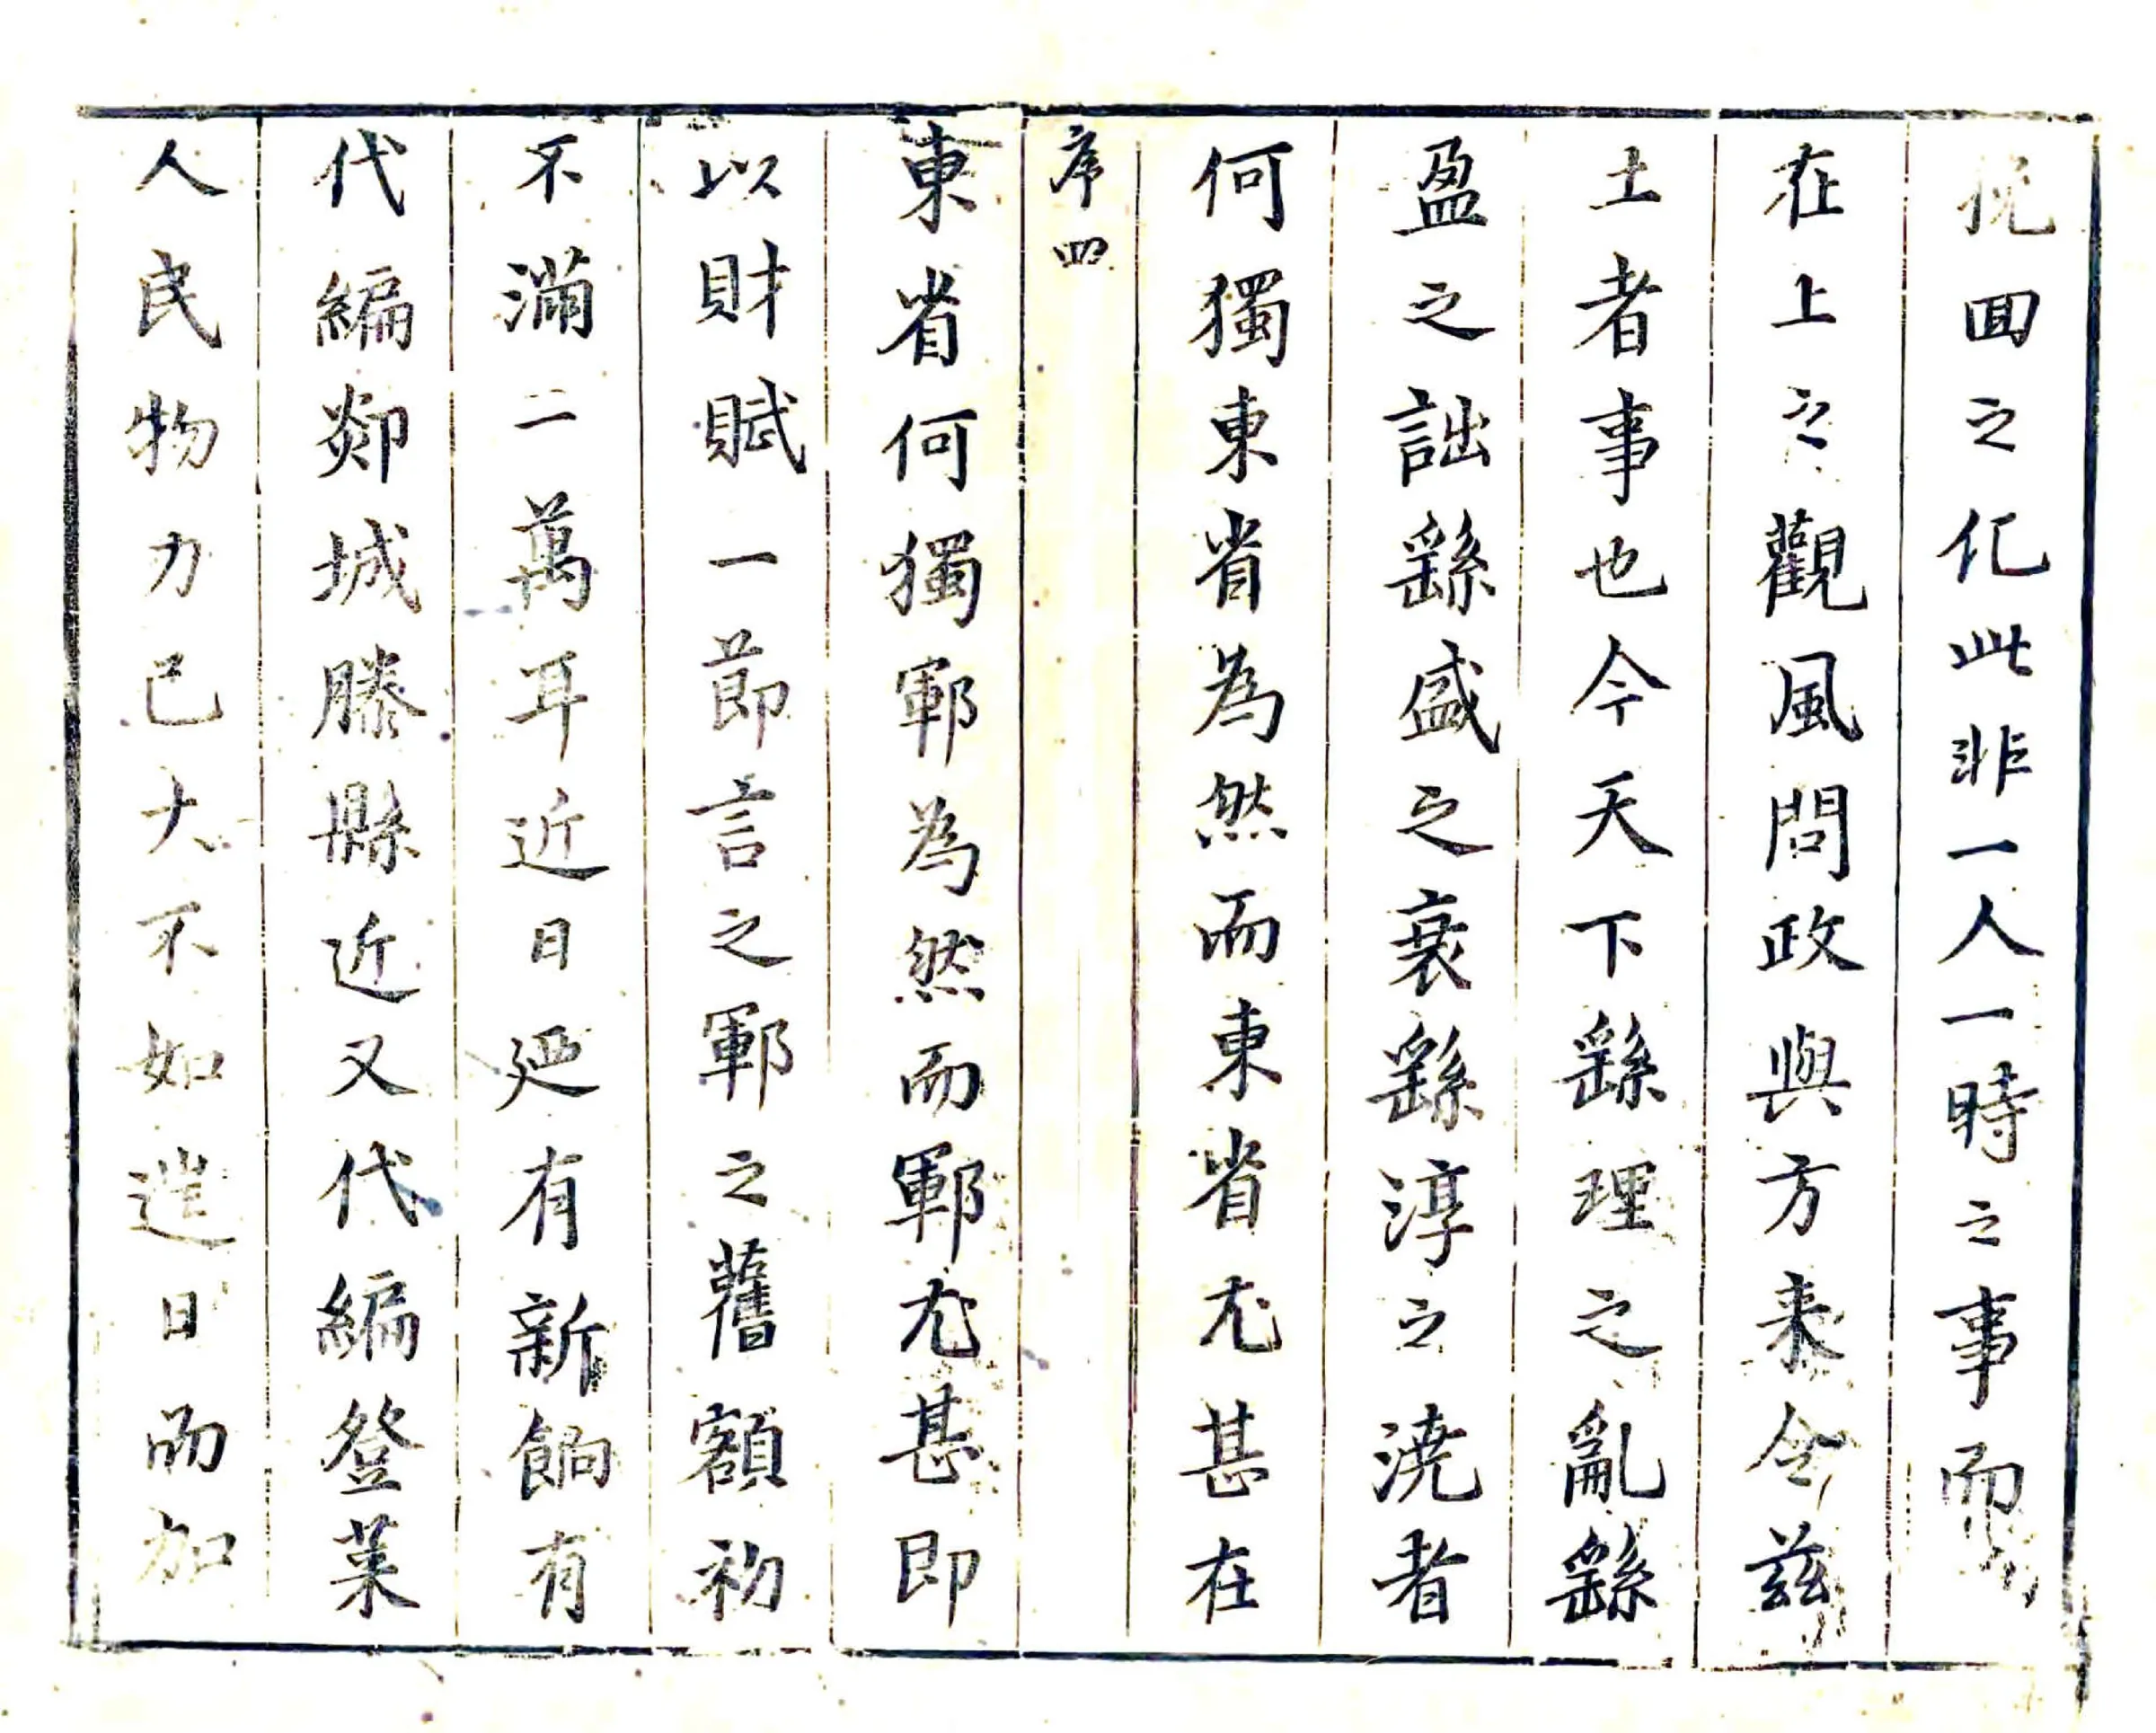 挽回之化此非一人一時之事而
在上之觀風問政與方来令茲
土者事也今天下繇理之亂繇
盈之詘繇盛之衰繇淳之澆者
何獨東省為然而東省尤甚在
序四
東省何獨鄆為然而鄆尤甚即
以財賦一節言之鄆之舊額初
不滿二萬耳近日延有新餉有
代編郯城滕縣近又代編登萊
人民物力已大不如遑日而加